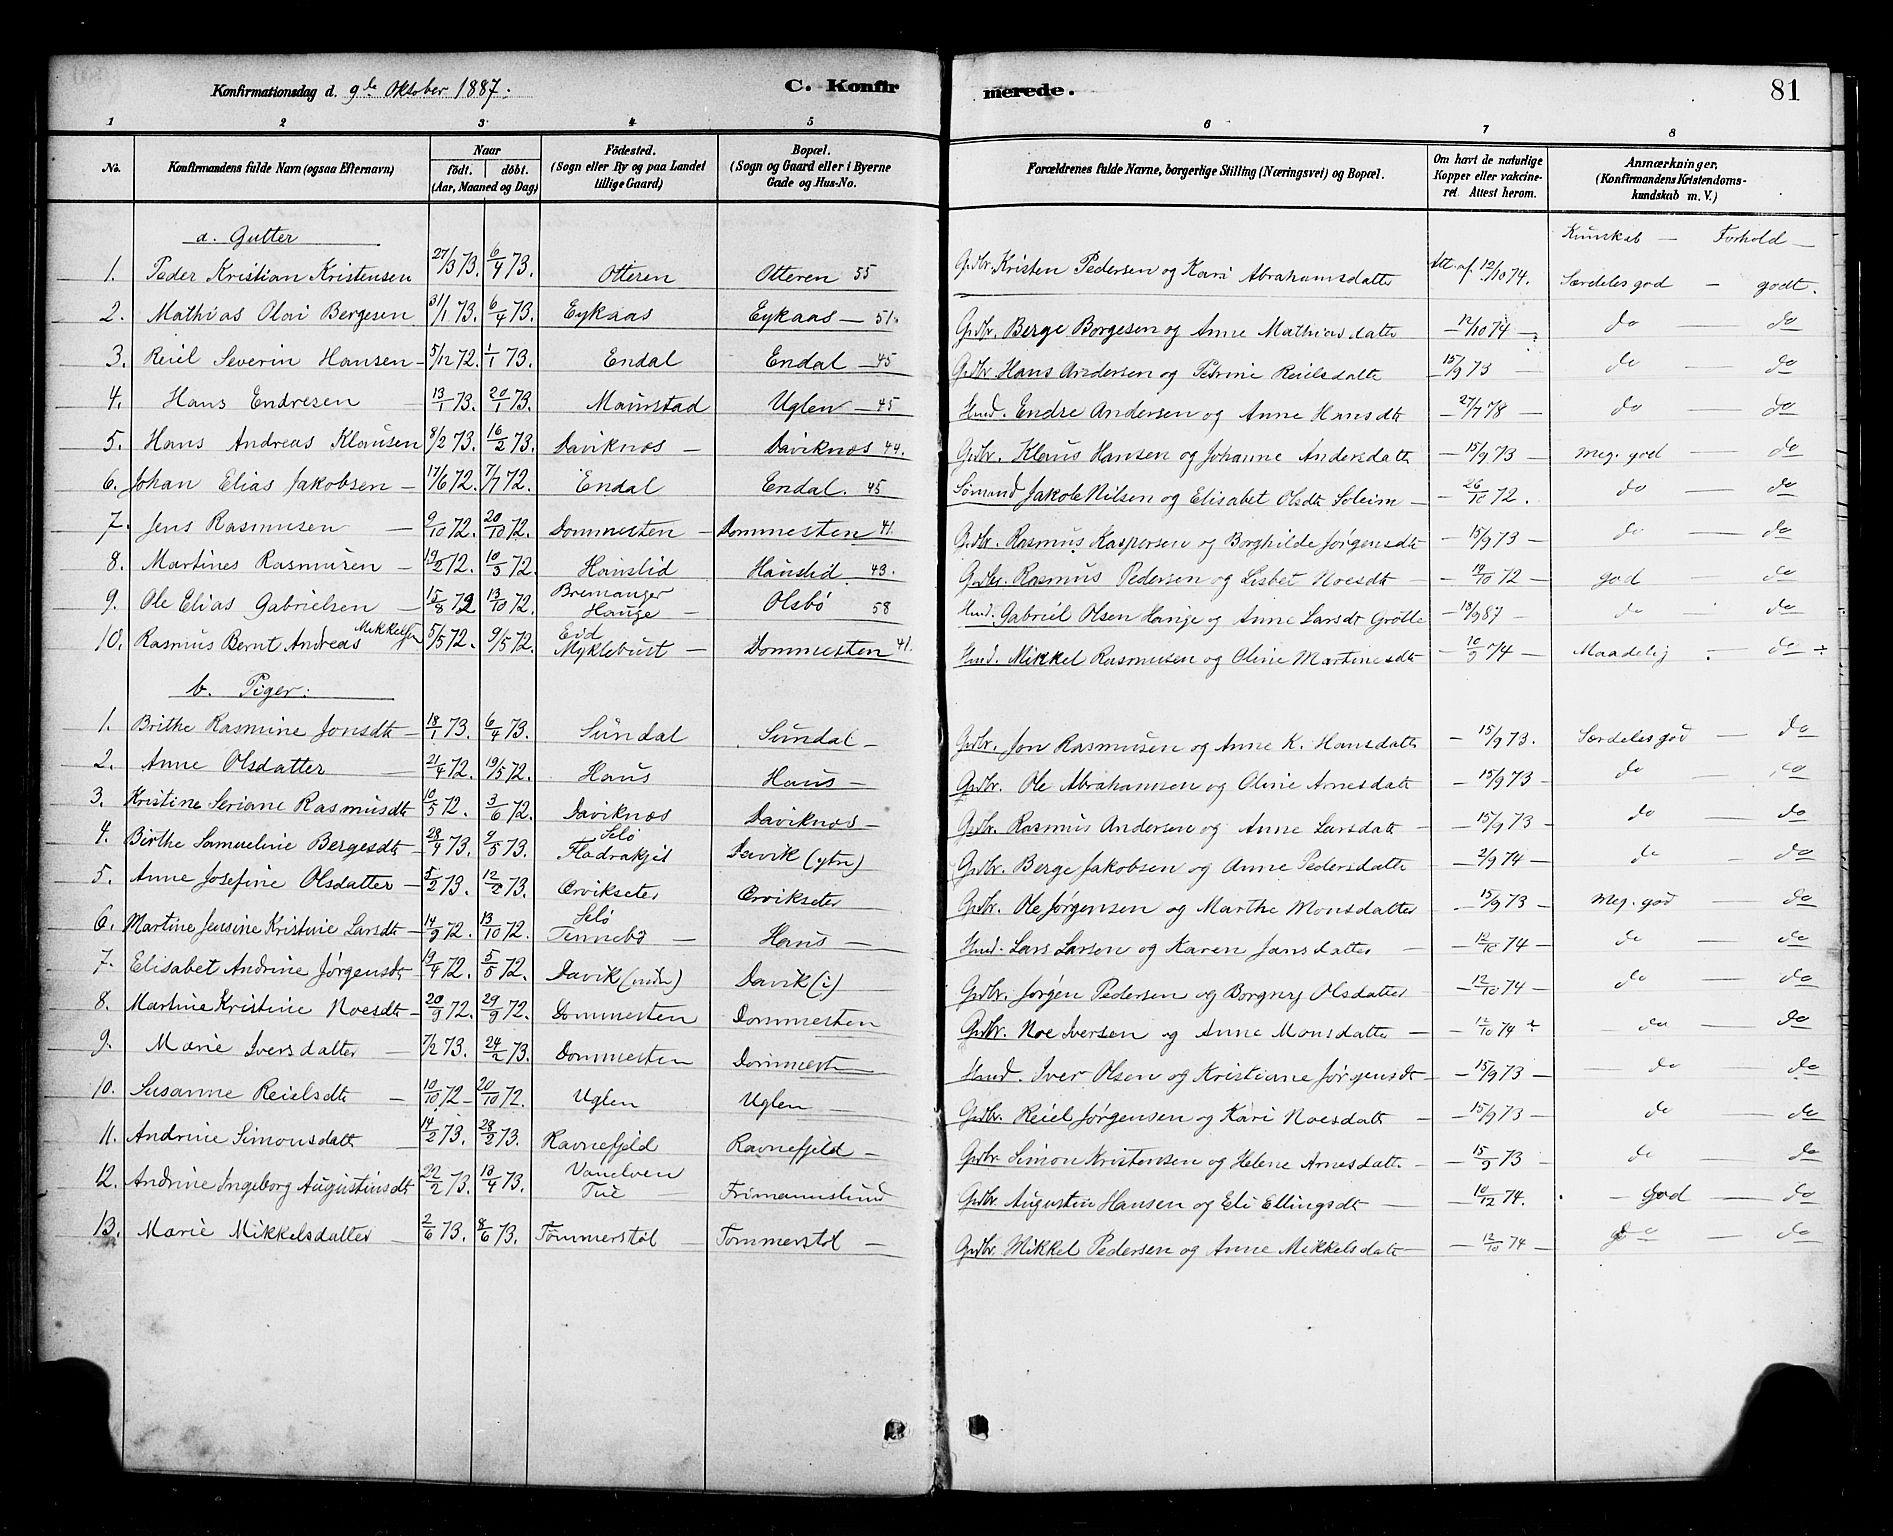 Konfirmationsdag d. 9de Oktober 1887.
C. Konfir merede. 81
1 2 3 4 5 6 7 8
No. Konfirmandens fulde Navn (ogsaa Efternavn) Naar födt. döbt. (Aar, Maaned og Dag) Födested. (Sogn eller By og paa Landet tillige Gaard) Bopæl. (Sogn og Gaard eller i Byerne Gade og Hus-No. Forældrenes fulde Navne, borgerlige Stilling (Næringsvei) og Bopæl. Om havt de naturlige Kopper eller vakcineret. Attest herom. Anmærkninger, (Konfirmandens Kristendomskundskab m. V.)
a. Gutter Kunskab — Forhold —
1. Peder Kristian Kristensen 27/3 73. 6/4 73. Otteren Otteren 55 Grdbr. Kristen Pedersen og Kari Abrahamsdatter Att. af 12/10 74. Særdeles god — godt.
2. Mathias Olai Bergesen 31/1 73. 6/4 73. Eykaas Eykaas — 51. Grdbr. Berge Borgesen og Anne Mathiasdatter — 12/10 74 — do — do
3. Reiel Severin Hansen — 5/12 72. 1/1 73. Endal Endal — 45 Grdbr. Hans Andersen og Petrine Reielsdatte — 15/9 73 — do — do
4. Hans Endresen — 13/1 73. 20/1 73. Maurstad Uglen — 45 Husmd. Endre Andersen og Anne Hansdt — 27/7 78 — do — do
5. Hans Andreas Klausen 8/2 73. 16/2 73. Daviknæs — Daviknæs 44. Grdbr. Klaus Hansen og Johanne Andersdatt — 15/9 73 — meg. god — do
6. Johan Elias Jakobsen — 17/6 72. 7/7 72. Endal Endal. 45 Sømand Jakob Nilsen og Elisabet Olsdt Soleim — — 26/10 72. do — do
7. Jens Rasmusen — 9/10 72. 20/10 72. Dommesten — Dommesten 41. Grdbr. Rasmus Kaspersen og Borghilde Jørgensdt — 15/9 73 — do — do
8. Martines Rasmusen — 19/2 72. 10/3 72. Hauslid Hauslid. 43. Grdbr. Rasmus Pedersen og Lisbet Noesdt — 19/10 72 — god do
9. Ole Elias Gabrielsen — 15/8 72 13/10 72. Bremanger Hauge — Olsbö 58 Husmd. Gabriel Olsen Hauge og Anne Larsdt Grotle — 18/9 87 — do — do
10. Rasmus Bernt Andreas Mikkelsen 5/5 72. 9/5 72. Eid Myklebust — Dommesten 41. Husmd. Mikkel Rasmusen og Oline Martinesdt — 10/9 74 — Maadelig do
b. Piger.
1. Brithe Rasmine Jonsdt — 18/1 73. 6/4 73. Sundal Sundal — Grdbr. Jon Rasmusen og Anne K. Hansdatte — 15/9 73. Særdeles god — do
2. Anne Olsdatter — 21/4 72. 19/5 72. Haus Haus — Grdbr. Ole Abrahamsen og Oline Arnesdatt — 15/9 73 — do — do
3. Kristine Seriane Rasmusdt 10/5 72. 3/6 72. Daviknæs Daviknæs — Grdbr. Rasmus Andersen og Anne Larsdatt — 15/9 73 — do — do
4. Birthe Samueline Bergesdt — 28/4 73. 9/5 73. Selö Fladrakjet Davik (ytre) Grdbr. Berge Jakobsen og Anne Pedersdatte — 2/9 74 — do — do
5. Anne Josefine Olsdatter — 5/2 73. 12/2 73. Orvikseter Orvikseter Grdbr. Ole Jørgensen og Marthe Monsdatter — 15/9 73 — meg. god — do
6. Martine Jensine Kristine Larsdt — 14/9 72. 13/10 72. Selö Tennebö — Haus — Husmd. Lars Larsen og Karen Jansdatter — — 12/10 74 — do — do
7. Elisabet Andrine Jørgensdt 19/4 72. 5/5 72. Davik (indr) Davik (i) — Grdbr. Jørgen Pedersen og Borgny Olsdatter — 12/10 74 — do — do
8. Martine Kristine Noesdt — 20/9 72. 29/9 72. Dommesten Dommesten Grdbr. Noe Iversen og Anne Monsdatte — — 12/10 74 do — do
9. Marie Iversdatter — 7/2 73. 24/2 73. Dommesten Dommest — Husmd. Iver Olsen og Kristiane Jørgensdt — — 15/9 73 — do — do
10. Susanne Reielsdt — 10/10 72 — 20/10 72. Uglen Uglen — Grdbr. Reiel Jørgensen og Kari Noesdatte — 15/9 73 — do — do
11. Andrine Simonsdatt — 14/2 73. 28/2 73. Ravnefjeld Ravnefjeld — Grdbr. Simon Kristensen og Helene Arnesdatt — — 15/9 73 — do — do
12. Andrine Ingeborg Augustinsdt 22/2 73. 18/4 73. Vanelven Tue Frimannslund Grdbr. Augustin Hansen og Eli Ellingsdt — — 10/12 74. — God — do
13. Marie Mikkelsdatter — 2/6 73. 8/6 73. Tommerstöl — Tommerstöl — Grdbr. Mikkel Pedersen og Anne Mikkelsdatt — — 12/10 74 — do — do